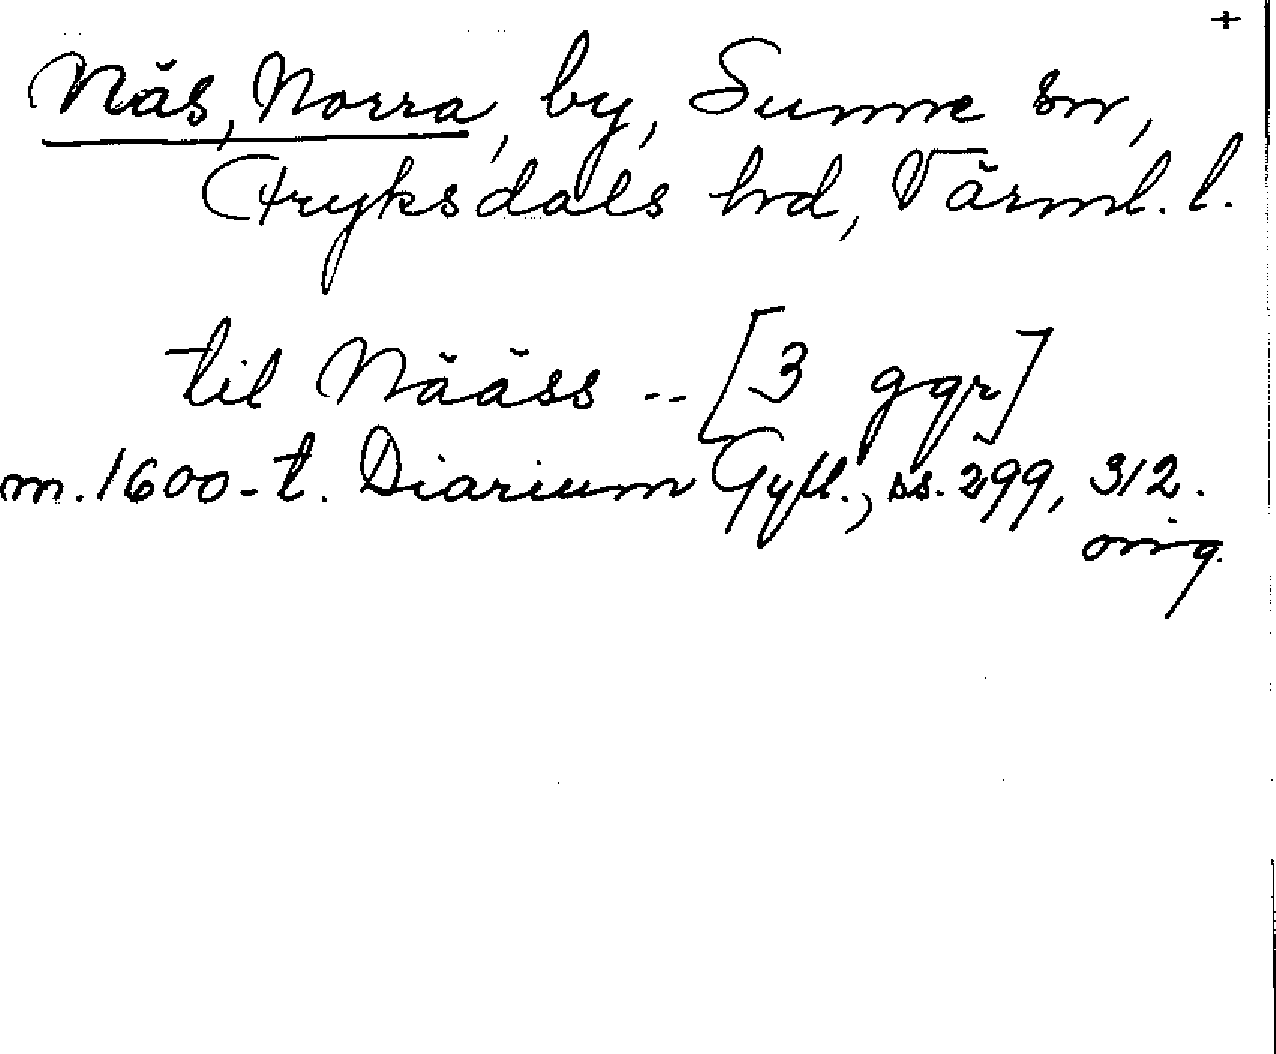 +
Näs, Norra, by, Sunne sn,
Fryksdals hd, Värml. l.
til Nääss -- [3 ggr]
m. 1600-t. Diarium Gyll., ss. 299, 312.
orig.